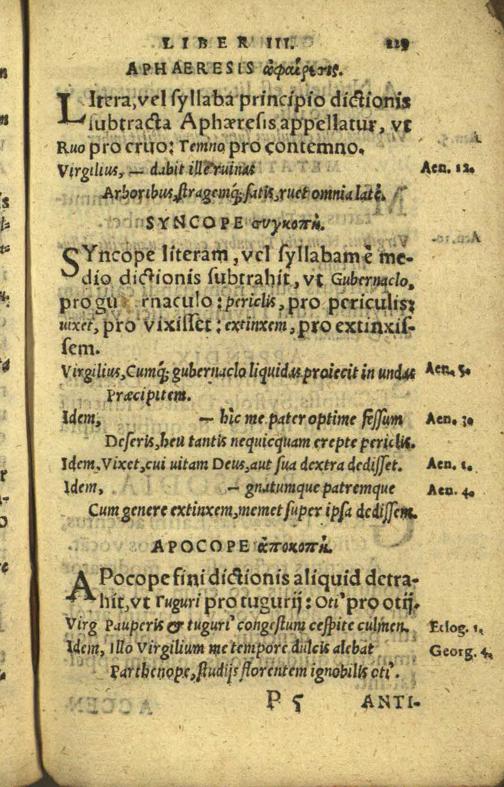 LIBER III. 229
APHAERESIS ἀφαίρεσις.
LItera, vel syllaba principio dictionis
subtracta Aphæresis appellatur, vt
Ruo pro eruo: Temno pro contemno.
Virgilius, — dabit ille ruinas Aen. 12.
Arboribus, stragemq; satis, ruet omnia latè.
SYNCOPE συγκοπή.
SYncope literam, vel syllabam è me-
dio dictionis subtrahit, vt Gubernaclo,
pro gu rnaculo: periclis, pro periculis:
uixet, pro vixisset: extinxem, pro extinxis-
sem.
Virgilius, Cumq; gubernaclo liquidas proiecit in undas Aen. 5.
Præcipitem.
Idem, — hîc me pater optime fessum Aen. 3.
Deseris, heu tantis nequicquam erepte periclis.
Idem, Vixet, cui uitam Deus, aut sua dextra dedisset. Aen. 1.
Idem, — gnatumque patremque Aen. 4.
Cum genere extinxem, memet super ipsa dedissem.
APOCOPE ἀποκοπή.
APocope fini dictionis aliquid detra-
hit, vt Tuguri pro tugurij: Oti' pro otij.
Virg Pauperis & tuguri' congestum cespite culmen. Eclog. 1.
Idem, Illo Virgilium me tempore dulcis alebat Georg. 4.
Parthenope, studijs florentem ignobilis oti'.
P 5 ANTI-